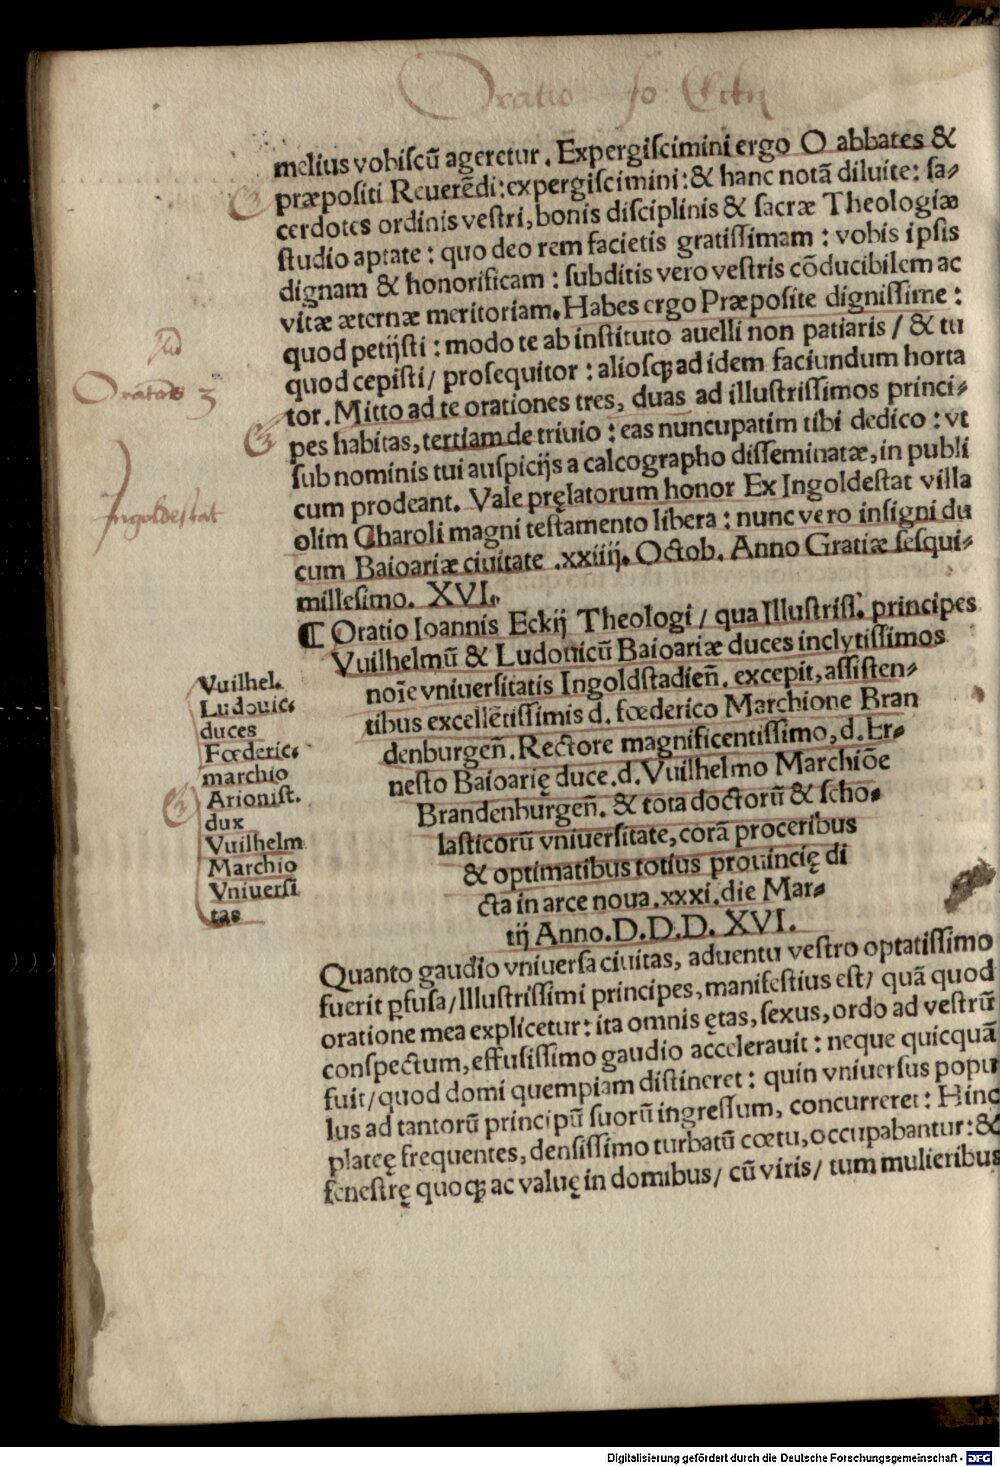 Oratio Jo: Eckij
melius vobiſcū ageretur. Expergiſcimini ergo O abbates &
præpoſiti Reuerēdi: expergiſcimini: & hanc notā diluite: ſa⸗
cerdotes ordinis veſtri, bonis diſciplinis & ſacræ Theologiæ
ſtudio aptate: quo deo rem facietis gratiſſimam: vobis ipſis
dignam & honorificam: ſubditis vero veſtris cōducibilem ac
vitæ æternæ meritoriam. Habes ergo Præpoſite digniſſime:
quod petijſti: modo te ab inſtituto auelli non patiaris / & tu
quod cepiſti / proſequitor: alioſqꝫ ad idem faciundum horta
tor. Mitto ad te orationes tres, duas ad illuſtriſſimos princi⸗
pes habitas, tertiam de triuio: eas nuncupatim tibi dedico: vt
ſub nominis tui auſpicijs a calcographo diſſeminatæ, in publi
cum prodeant. Vale pręlatorum honor Ex Ingoldeſtat villa
olim Charoli magni teſtamento libera: nunc vero inſigni du
cum Baioariæ ciuitate .xxiiij. Octob. Anno Gratiæ ſeſqui⸗
milleſimo. XVI.
Orationes 3
Ingoldeſtat
¶ Oratio Ioannis Eckij Theologi / qua Illuſtriſſ. principes
Vuilhelmū & Ludouicū Baioariæ duces inclytiſſimos
noīe vniuerſitatis Ingoldſtadieñ. excepit, aſſiſten⸗
tibus excellētiſſimis d. fœderico Marchione Bran
denburgeñ. Rectore magnificentiſſimo, d. Er⸗
neſto Baioarię duce. d. Vuilhelmo Marchiōe
Brandenburgeñ. & tota doctorū & ſcho⸗
laſticorū vniuerſitate, corā proceribus
& optimatibus totius prouincię di
cta in arce noua .xxxi. die Mar⸗
tij Anno. D.D.D. XVI.
Vuilhel.
Ludouic⸗
duces
Fœderic⸗
marchio
Arioniſt.
dux
Vuilhelm
Marchio
Vniuerſi
tas
Quanto gaudio vniuerſa ciuitas, aduentu veſtro optatiſſimo
fuerit ꝑfuſa / Illuſtriſſimi principes, manifeſtius eſt / quā quod
oratione mea explicetur: ita omnis ętas, ſexus, ordo ad veſtrū
conſpectum, effuſiſſimo gaudio accelerauit: neque quicquā
fuit / quod domi quempiam diſtineret: quin vniuerſus popu
lus ad tantorū principū ſuorū ingreſſum, concurreret: Hinc
plateę frequentes, denſiſſimo turbatū cœtu, occupabantur: &
feneſtrę quoqꝫ ac valuę in domibus / cū viris / tum mulieribus
Digitalisierung gefördert durch die Deutsche Forschungsgemeinschaft - DFG